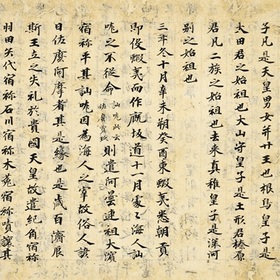 子凡是天皇男女并廿王也根鳥皇子是
大田君之始祖也大山守皇子是土形君榛原
君凡二族之始祖也去来真稚皇子是深河
別之始祖也
三年冬十月辛未朔癸酉東蝦夷悉朝貢
即役蝦夷而作厩坂道十一月處々海人訕
哤之不従命訕哤此云佐麼賣玖則遣阿曇連祖大濱
宿祢平其訕哤因為海人之宰故俗人諺
曰佐麼阿摩者其是緣也是歲百濟辰
斯王立之失礼於貴國天皇故遣紀角宿祢
羽田矢代宿祢石川宿祢木菟宿祢嘖讓其